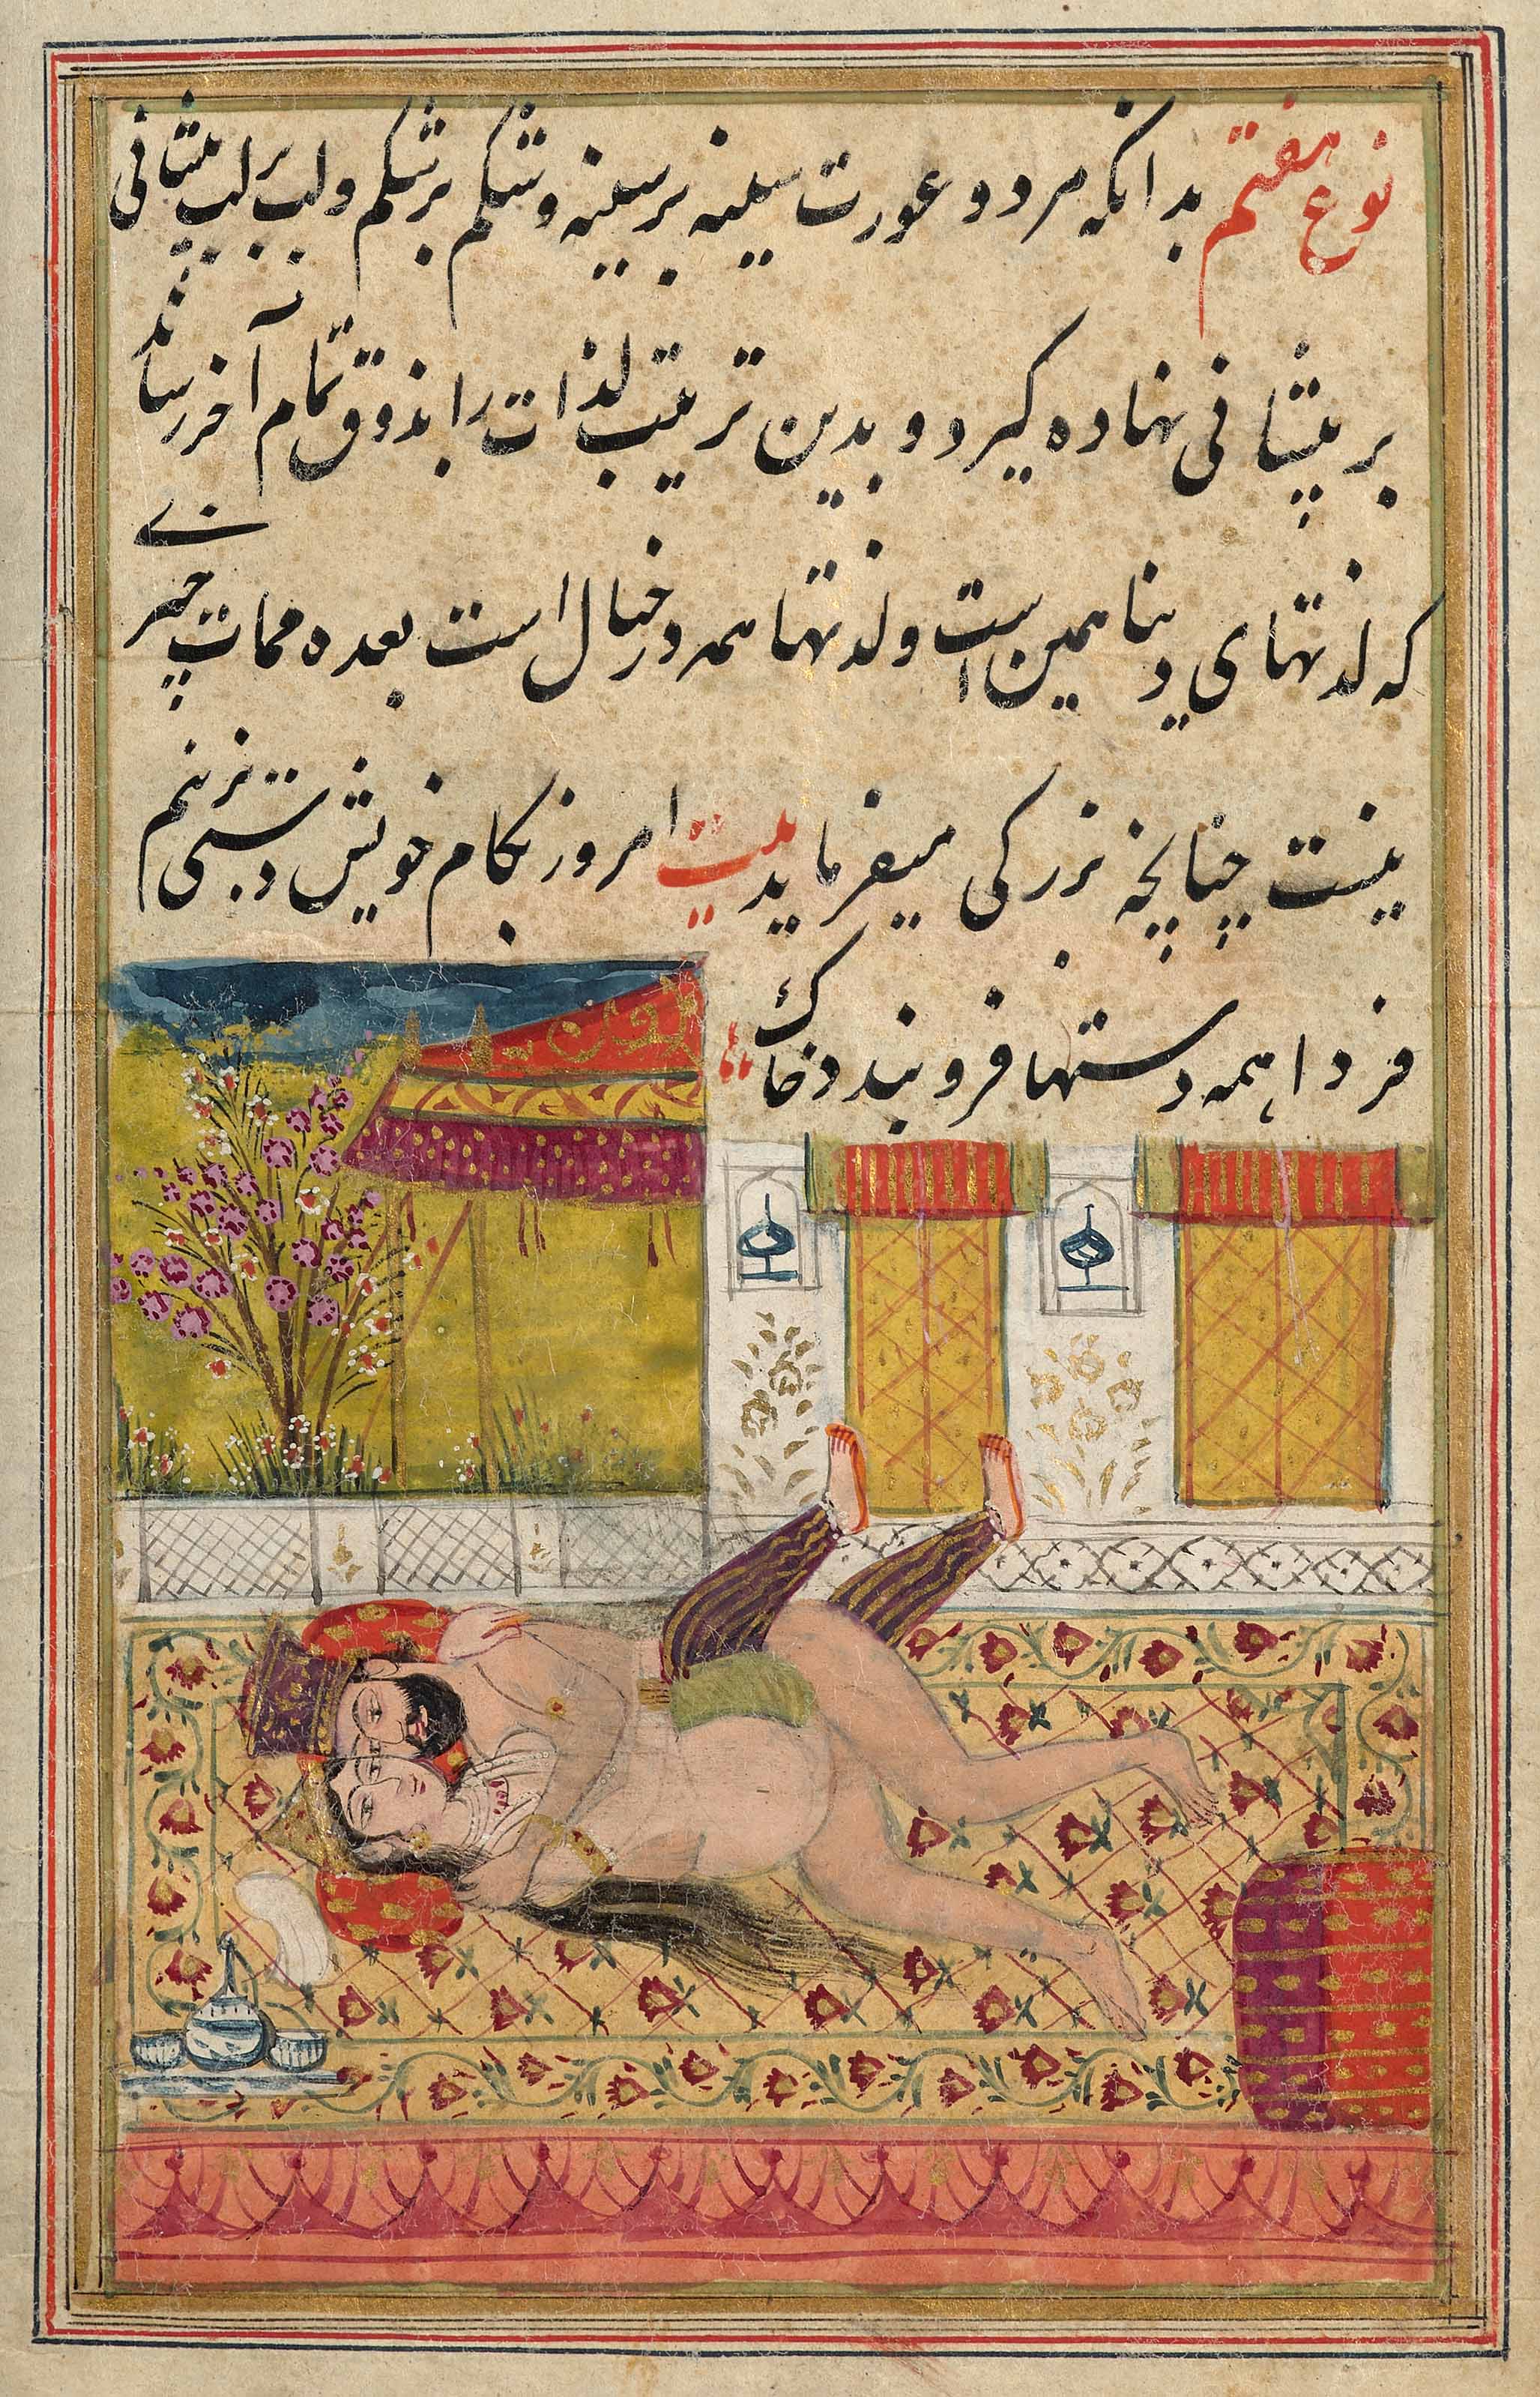 نوع هفتم بدانکه مرد و عورت سینه بر سینه و شکم بر شکم و لب بر لب پیشانی
بر پیشانی نهاده گیرد و بدین ترتیب لذات را بذوق تمام آخر رساند
که لذتهای دنیا همین است و لذتها همه در خیال است بعده ممات چیزے
نیست چنانچه بزرکی میفرماید بیت امروز بکام خویش دستی بزنیم
فردا همه دستها فرو بندد خاک